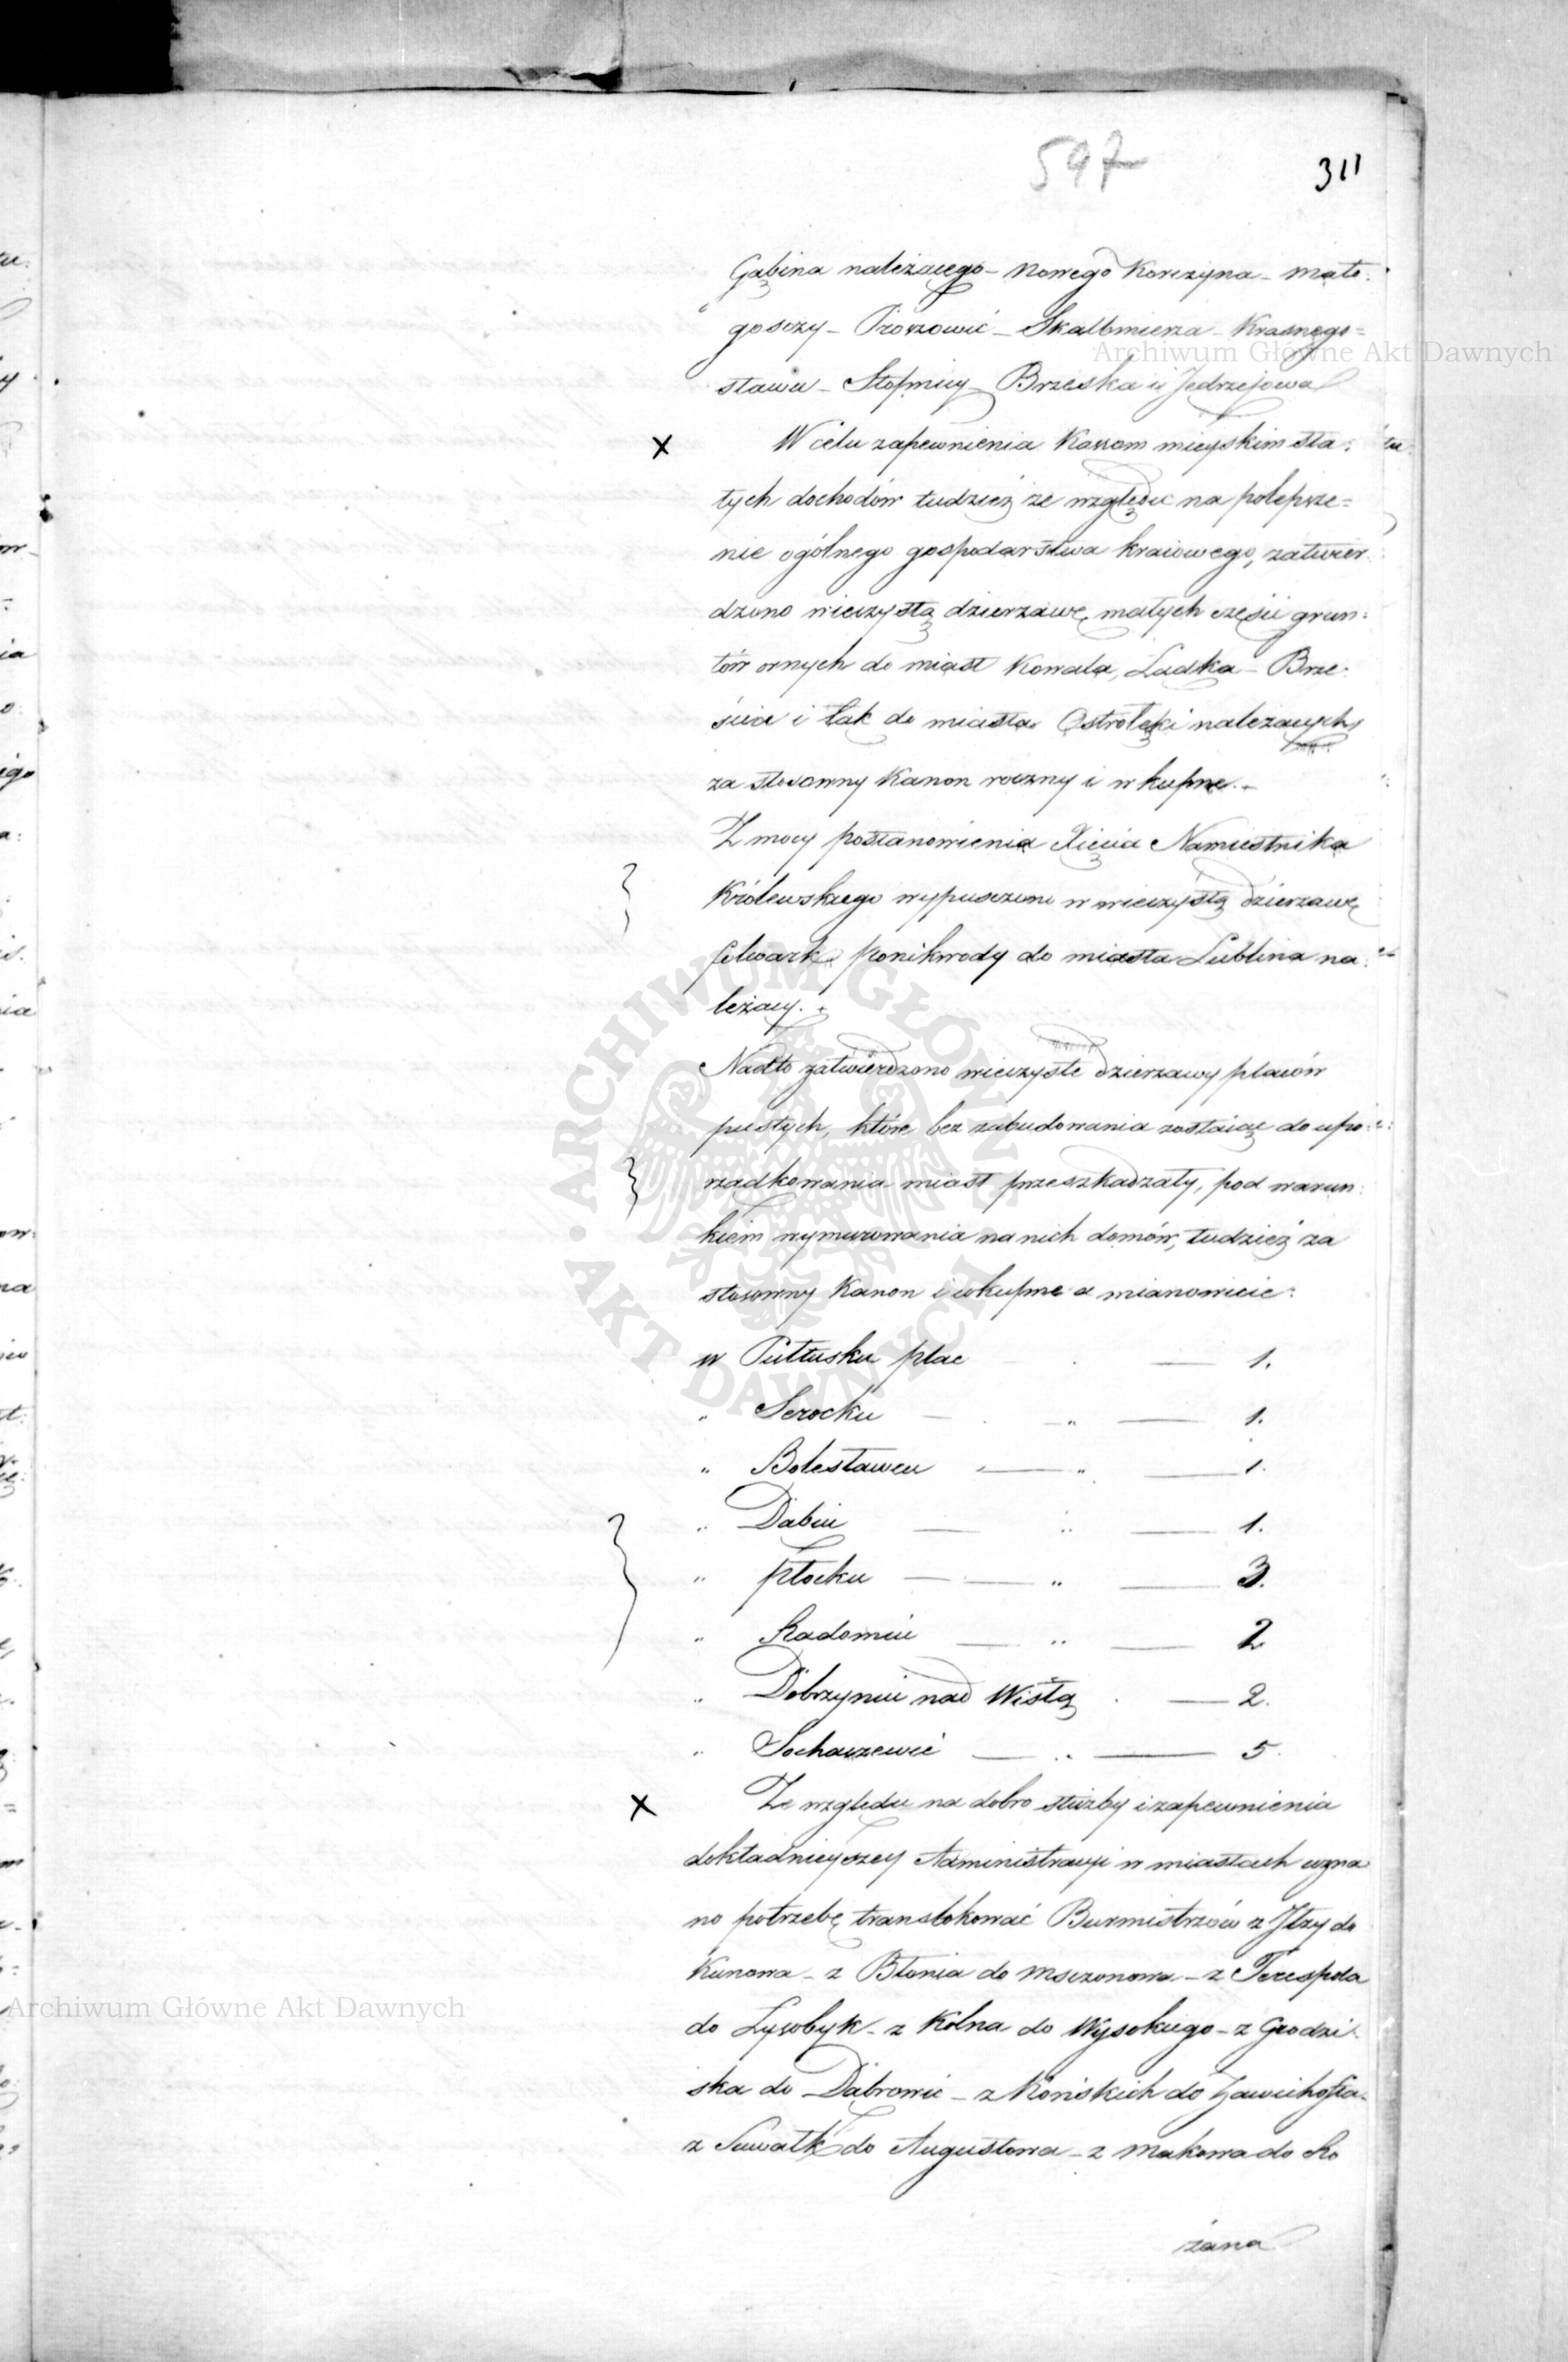 597 311
Gąbina należącego – Nowego Korczyna – Mało:
goszczy – Proszowic – Skalbmierza – Krasnego=
stawu – Stopnicy – Brzeska i Jędrzejowa
W celu zapewnienia Kassom mieyskim sta:
łych dochodów tudzież ze względu na polepsze=
nie ogólnego gospodarstwa kraiowego, zatwier
dzono wieczystą dzierzawę małych części grun:
tów ornych do miast Kowala, Ladka – Brze:
ścia i łąk do miasta Ostrołęki należących
za stosowny Kanon roczny i wkupne. –
Z mocy postanowienia Xięcia Namiestnika
Królewskiego wypuszczono w wieczystą dzierzawę
folwark Ponikwody do miasta Lublina na:
leżący.
Nadto zatwierdzono wieczyste dzierzawy placów
pustych, które bez zabudowania zostaiąc do upo:
rządkowania miast przeszkadzały, pod warun:
kiem wymurowania na nich domów, tudzież za
stosowny Kanon i wkupne a mianowicie:
w Pułtusku plac — 1.
„ Serocku — „ — 1.
„ Bolesławcu — „ — 1.
„ Dąbiu — „ — 1.
„ Płocku — „ — 3.
„ Radomiu — „ — 2
„ Dobrzyniu nad Wisłą — 2.
„ Sochaczewie — „ — 5.
Ze względu na dobro służby i zapewnienia
dokładnieyszey Administracyi w miastach uzna
no potrzebę translokować Burmistrzów z Iłzy do
Kunowa – z Błonia do Mszczonowa – z Terespola
do Łysobyk – z Kolna do Wysokiego – z Grodzi:
ska do Dąbrowic – z Końskich do Zawichosta –
z Suwałk do Augustowa – z Makowa do Ro
żana
Archiwum Główne Akt Dawnych
Archiwum Główne Akt Dawnych
ARCHIWUM GŁÓWNE • AKT DAWNYCH •